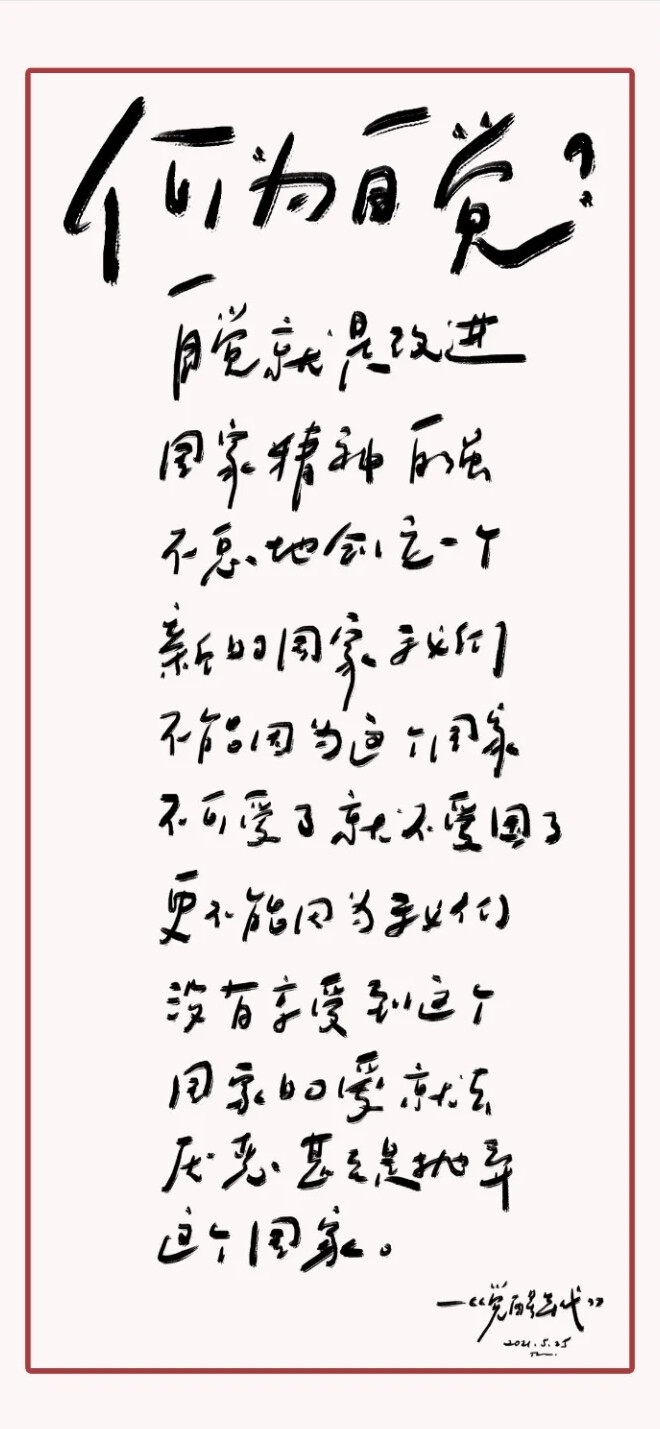 何为自觉?
自觉就是改进
国家精神 自强
不息地创立一个
新的国家 我们
不能因为这个国家
不可爱了就不爱国了
更不能因为我们
没有享受到这个
国家的爱就去
厌恶甚至是抛弃
这个国家。
—《觉醒年代》
2021.5.25